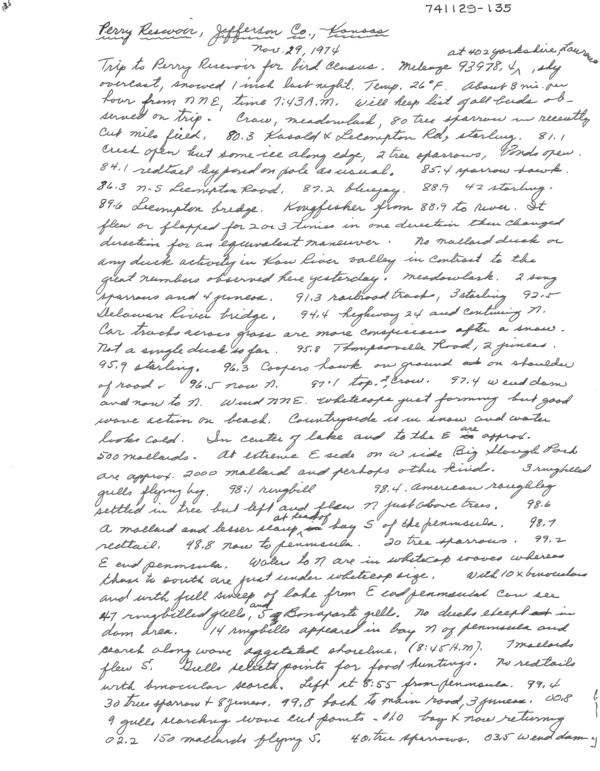 741129-135
Perry Resevoir, Jefferson Co., Kansas
Nov. 29, 1974
at 402 Yorkshire, Lawrence
Trip to Perry Resevoir for bird census. Mileage 93978.4, sky
overcast, snowed 1 inch last night. Temp. 26°F. About 8 mi. per
hour from NNE, time 7:43 A.M. Will keep list of all birds ob-
served on trip. Crow, meadowlark, 80 tree sparrow in recently
cut milo field. 80.3 Kasold & Lecompton Rd, starling. 81.1
Creek open but some ice along edge, 2 tree sparrows, Ponds open.
84.1 redtail by pond on pole as usual. 85.4 sparrow hawk.
86.3 N-S Lecompton Road. 87.2 bluejay. 88.9 42 starling.
89.6 Lecompton bridge. Kingfisher from 88.9 to river. It
flew or flapped for 2 or 3 times in one direction then changed
direction for an equivalent maneuver. No mallard duck or
any duck activity in Kaw River valley in contrast to the
great numbers observed here yesterday. Meadowlark. 2 song
sparrows and 4 juncos. 91.3 railroad track, 3 starling 92.5
Delaware River bridge. 94.4 highway 24 and continuing N.
Car tracks across grass are more conspicuous after a snow.
Not a single duck so far. 95.8 Thompsonville Road, 2 juncos.
95.9 starling. 96.3 Coopers hawk on ground on shoulder
of road. 96.5 now N. 97.1 top. 2 crow. 97.4 W end dam
and now to N. Wind NNE. Whitecaps just forming but good
wave action on beach. Countryside is in snow and water
looks cold. In center of lake and to the E are approx.
500 mallards. At extreme E side on W side Big Slough Park
are approx. 2000 mallard and perhaps other kinds. 3 ringbilled
gulls flying by. 98.1 ringbill 98.4. American roughleg
settled in tree but left and flew N just above trees. 98.6
A mallard and lesser scaup at head of bay S of the peninsula. 98.7
redtail. 98.8 now to peninsula. 20 tree sparrows. 99.2
E end peninsula. Waters to N are in whitecap waves whereas
those to south are just under whitecap size. With 10x binoculars
and with full sweep of lake from E end peninsula can see
47 ringbilled gulls, and 5 Bonaparte gull. No ducks except in
dam area. 14 ringbills appeared in bay N of peninsula and
search along wave aggitated shoreline. (8:45 A.M). 7 mallards
flew S. Gulls selects points for food huntings. No redtails
with binocular search. Left at 8:55 from peninsula. 99.4
30 tree sparrow + 8 juncos. 99.8 back to main road, 3 juncos. 00.8
9 gulls searching wave cut points - 01.0 bay & now returning
02.2 150 mallards flying S. 40 tree sparrows. 03.5 W end dam